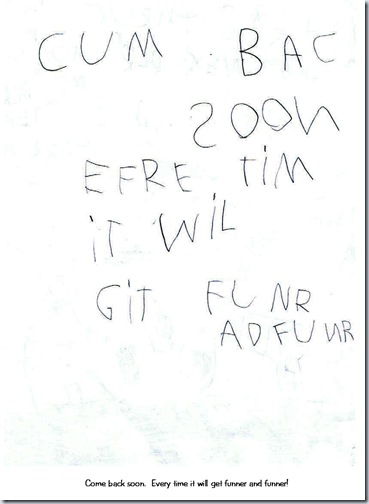 CUM BAC
SOON
EFRE TiM
iT WiL
GiT FUNR
AD FUNR
Come back soon. Every time it will get funner and funner!